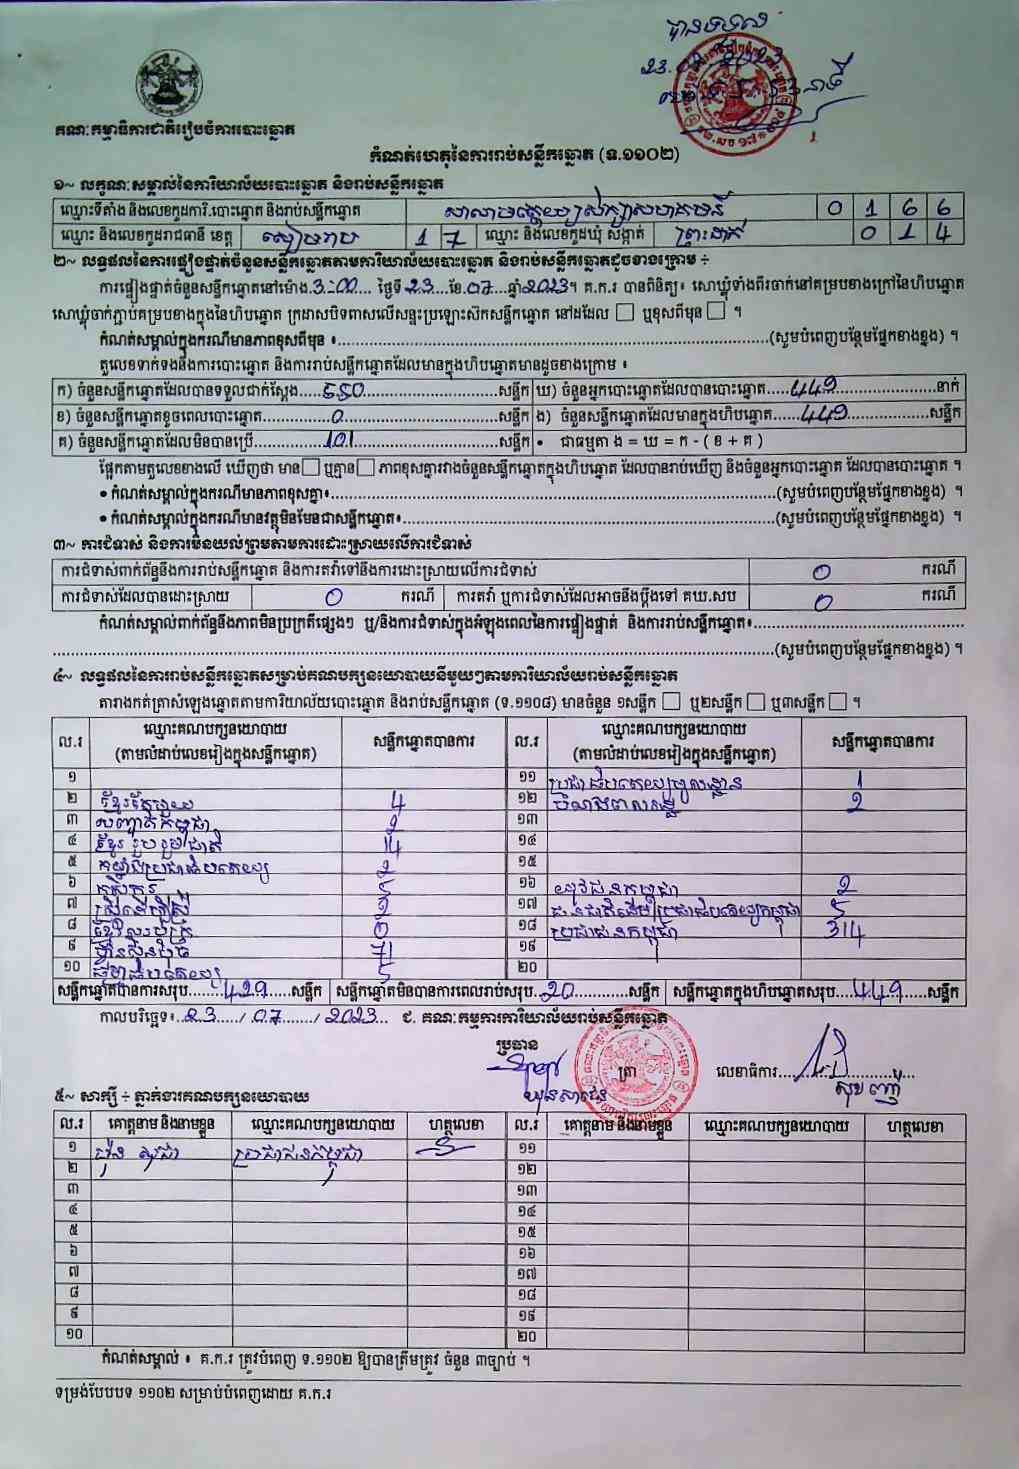 បានទទួល
23.07.2023
គណៈកម្មាធិការជាតិរៀបចំការបោះឆ្នោត
កំណត់ហេតុនៃការរាប់សន្លឹកឆ្នោត (ទ.១១០២)
១~ លក្ខណៈសម្គាល់នៃការិយាល័យបោះឆ្នោត និងរាប់សន្លឹកឆ្នោត
ឈ្មោះទីតាំង និងលេខកូដការិ.បោះឆ្នោត និងរាប់សន្លឹកឆ្នោត 0 1 6 6
ឈ្មោះ និងលេខកូដរាជធានី ខេត្ត សៀមរាប 1 7 ឈ្មោះ និងលេខកូដឃុំ សង្កាត់ ព្រះដាក់ 0 1 4
២~ លទ្ធផលនៃការផ្ទៀងផ្ទាត់ចំនួនសន្លឹកឆ្នោតតាមការិយាល័យបោះឆ្នោត និងរាប់សន្លឹកឆ្នោតដូចខាងក្រោម ÷
ការផ្ទៀងផ្ទាត់ចំនួនសន្លឹកឆ្នោតនៅម៉ោង 3:00 ថ្ងៃទី 23 ខែ 07 ឆ្នាំ 2023។ គ.ក.រ បានពិនិត្យ៖ សោឃ្លុំទាំងពីរចាក់នៅគម្របខាងក្រៅនៃហិបឆ្នោត
សោឃ្លុំចាក់ភ្ជាប់គម្របខាងក្នុងនៃហិបឆ្នោត ក្រដាសបិទពាសលើសន្ទះប្រឡោះស៊កសន្លឹកឆ្នោត នៅដដែល □ ឬខុសពីមុន □ ។
កំណត់សម្គាល់ក្នុងករណីមានភាពខុសពីមុន ៖ (សូមបំពេញបន្ថែមផ្នែកខាងខ្នង) ។
តួលេខទាក់ទងនឹងការបោះឆ្នោត និងការរាប់សន្លឹកឆ្នោតដែលមានក្នុងហិបឆ្នោតមានដូចខាងក្រោម ៖
ក) ចំនួនសន្លឹកឆ្នោតដែលបានទទួលជាក់ស្ដែង 550 សន្លឹក ឃ) ចំនួនអ្នកបោះឆ្នោតដែលបានបោះឆ្នោត 449 នាក់
ខ) ចំនួនសន្លឹកឆ្នោតខូចពេលបោះឆ្នោត 0 សន្លឹក ង) ចំនួនសន្លឹកឆ្នោតដែលមានក្នុងហិបឆ្នោត 449 សន្លឹក
គ) ចំនួនសន្លឹកឆ្នោតដែលមិនបានប្រើ 101 សន្លឹក • ជាធម្មតា ង = ឃ = ក - ( ខ + គ )
ផ្អែកតាមតួលេខខាងលើ ឃើញថា មាន □ ឬគ្មាន □ ភាពខុសគ្នារវាងចំនួនសន្លឹកឆ្នោតក្នុងហិបឆ្នោត ដែលបានរាប់ឃើញ និងចំនួនអ្នកបោះឆ្នោត ដែលបានបោះឆ្នោត ។
• កំណត់សម្គាល់ក្នុងករណីមានភាពខុសគ្នា៖ (សូមបំពេញបន្ថែមផ្នែកខាងខ្នង) ។
• កំណត់សម្គាល់ក្នុងករណីមានវត្ថុមិនមែនជាសន្លឹកឆ្នោត៖ (សូមបំពេញបន្ថែមផ្នែកខាងខ្នង) ។
៣~ ការជំទាស់ និងការមិនយល់ព្រមតាមការដោះស្រាយលើការជំទាស់
ការជំទាស់ពាក់ព័ន្ធនឹងការរាប់សន្លឹកឆ្នោត និងការតវ៉ាទៅនឹងការដោះស្រាយលើការជំទាស់ 0 ករណី
ការជំទាស់ដែលបានដោះស្រាយ 0 ករណី ការតវ៉ា ឬការជំទាស់ដែលអាចនឹងប្ដឹងទៅ គឃ.សប 0 ករណី
កំណត់សម្គាល់ពាក់ព័ន្ធនឹងភាពមិនប្រក្រតីផ្សេងៗ ឬ/និងការជំទាស់ក្នុងអំឡុងពេលនៃការផ្ទៀងផ្ទាត់ និងការរាប់សន្លឹកឆ្នោត៖
(សូមបំពេញបន្ថែមផ្នែកខាងខ្នង) ។
៤~ លទ្ធផលនៃការរាប់សន្លឹកឆ្នោតសម្រាប់គណបក្សនយោបាយនីមួយៗតាមការិយាល័យរាប់សន្លឹកឆ្នោត
តារាងកត់ត្រាសំឡេងឆ្នោតតាមការិយាល័យបោះឆ្នោត និងរាប់សន្លឹកឆ្នោត (ទ.១១០៨) មានចំនួន ១សន្លឹក □ ឬ២សន្លឹក □ ឬ៣សន្លឹក □ ។
ល.រ ឈ្មោះគណបក្សនយោបាយ សន្លឹកឆ្នោតបានការ ល.រ ឈ្មោះគណបក្សនយោបាយ សន្លឹកឆ្នោតបានការ
(តាមលំដាប់លេខរៀងក្នុងសន្លឹកឆ្នោត) (តាមលំដាប់លេខរៀងក្នុងសន្លឹកឆ្នោត)
១ ១១ ប្រជាធិបតេយ្យមូលដ្ឋាន 1
២ ខ្មែរតែមួយ 4 ១២ 2
៣ សញ្ជាតិកម្ពុជា 2 ១៣
៤ ខ្មែររួបរួមជាតិ 14 ១៤
៥ កម្លាំងប្រជាធិបតេយ្យ 2 ១៥
៦ កសិករ 5 ១៦ យុវជនកម្ពុជា 2
៧ ស្រីដើម្បីស្រី 2 ១៧ ជនជាតិដើមប្រជាធិបតេយ្យកម្ពុជា 5
៨ 0 ១៨ ប្រជាជនកម្ពុជា 314
៩ ហ៊្វុនស៊ិនប៉ិច 71 ១៩
១០ ធម្មាធិបតេយ្យ 5 ២០
សន្លឹកឆ្នោតបានការសរុប 429 សន្លឹក សន្លឹកឆ្នោតមិនបានការពេលរាប់សរុប 20 សន្លឹក សន្លឹកឆ្នោតក្នុងហិបឆ្នោតសរុប 449 សន្លឹក
កាលបរិច្ឆេទ៖ 23 / 07 / 2023 ជ. គណៈកម្មការការិយាល័យរាប់សន្លឹកឆ្នោត
ប្រធាន
ត្រា លេខាធិការ
៥~ សាក្សី ÷ ភ្នាក់ងារគណបក្សនយោបាយ
ល.រ គោត្តនាម និងនាមខ្លួន ឈ្មោះគណបក្សនយោបាយ ហត្ថលេខា ល.រ គោត្តនាម និងនាមខ្លួន ឈ្មោះគណបក្សនយោបាយ ហត្ថលេខា
១ ប្រជាជនកម្ពុជា ១១
២ ១២
៣ ១៣
៤ ១៤
៥ ១៥
៦ ១៦
៧ ១៧
៨ ១៨
៩ ១៩
១០ ២០
កំណត់សម្គាល់ ៖ គ.ក.រ ត្រូវបំពេញ ទ.១១០២ ឱ្យបានត្រឹមត្រូវ ចំនួន ៣ច្បាប់ ។
ទម្រង់បែបបទ ១១០២ សម្រាប់បំពេញដោយ គ.ក.រ